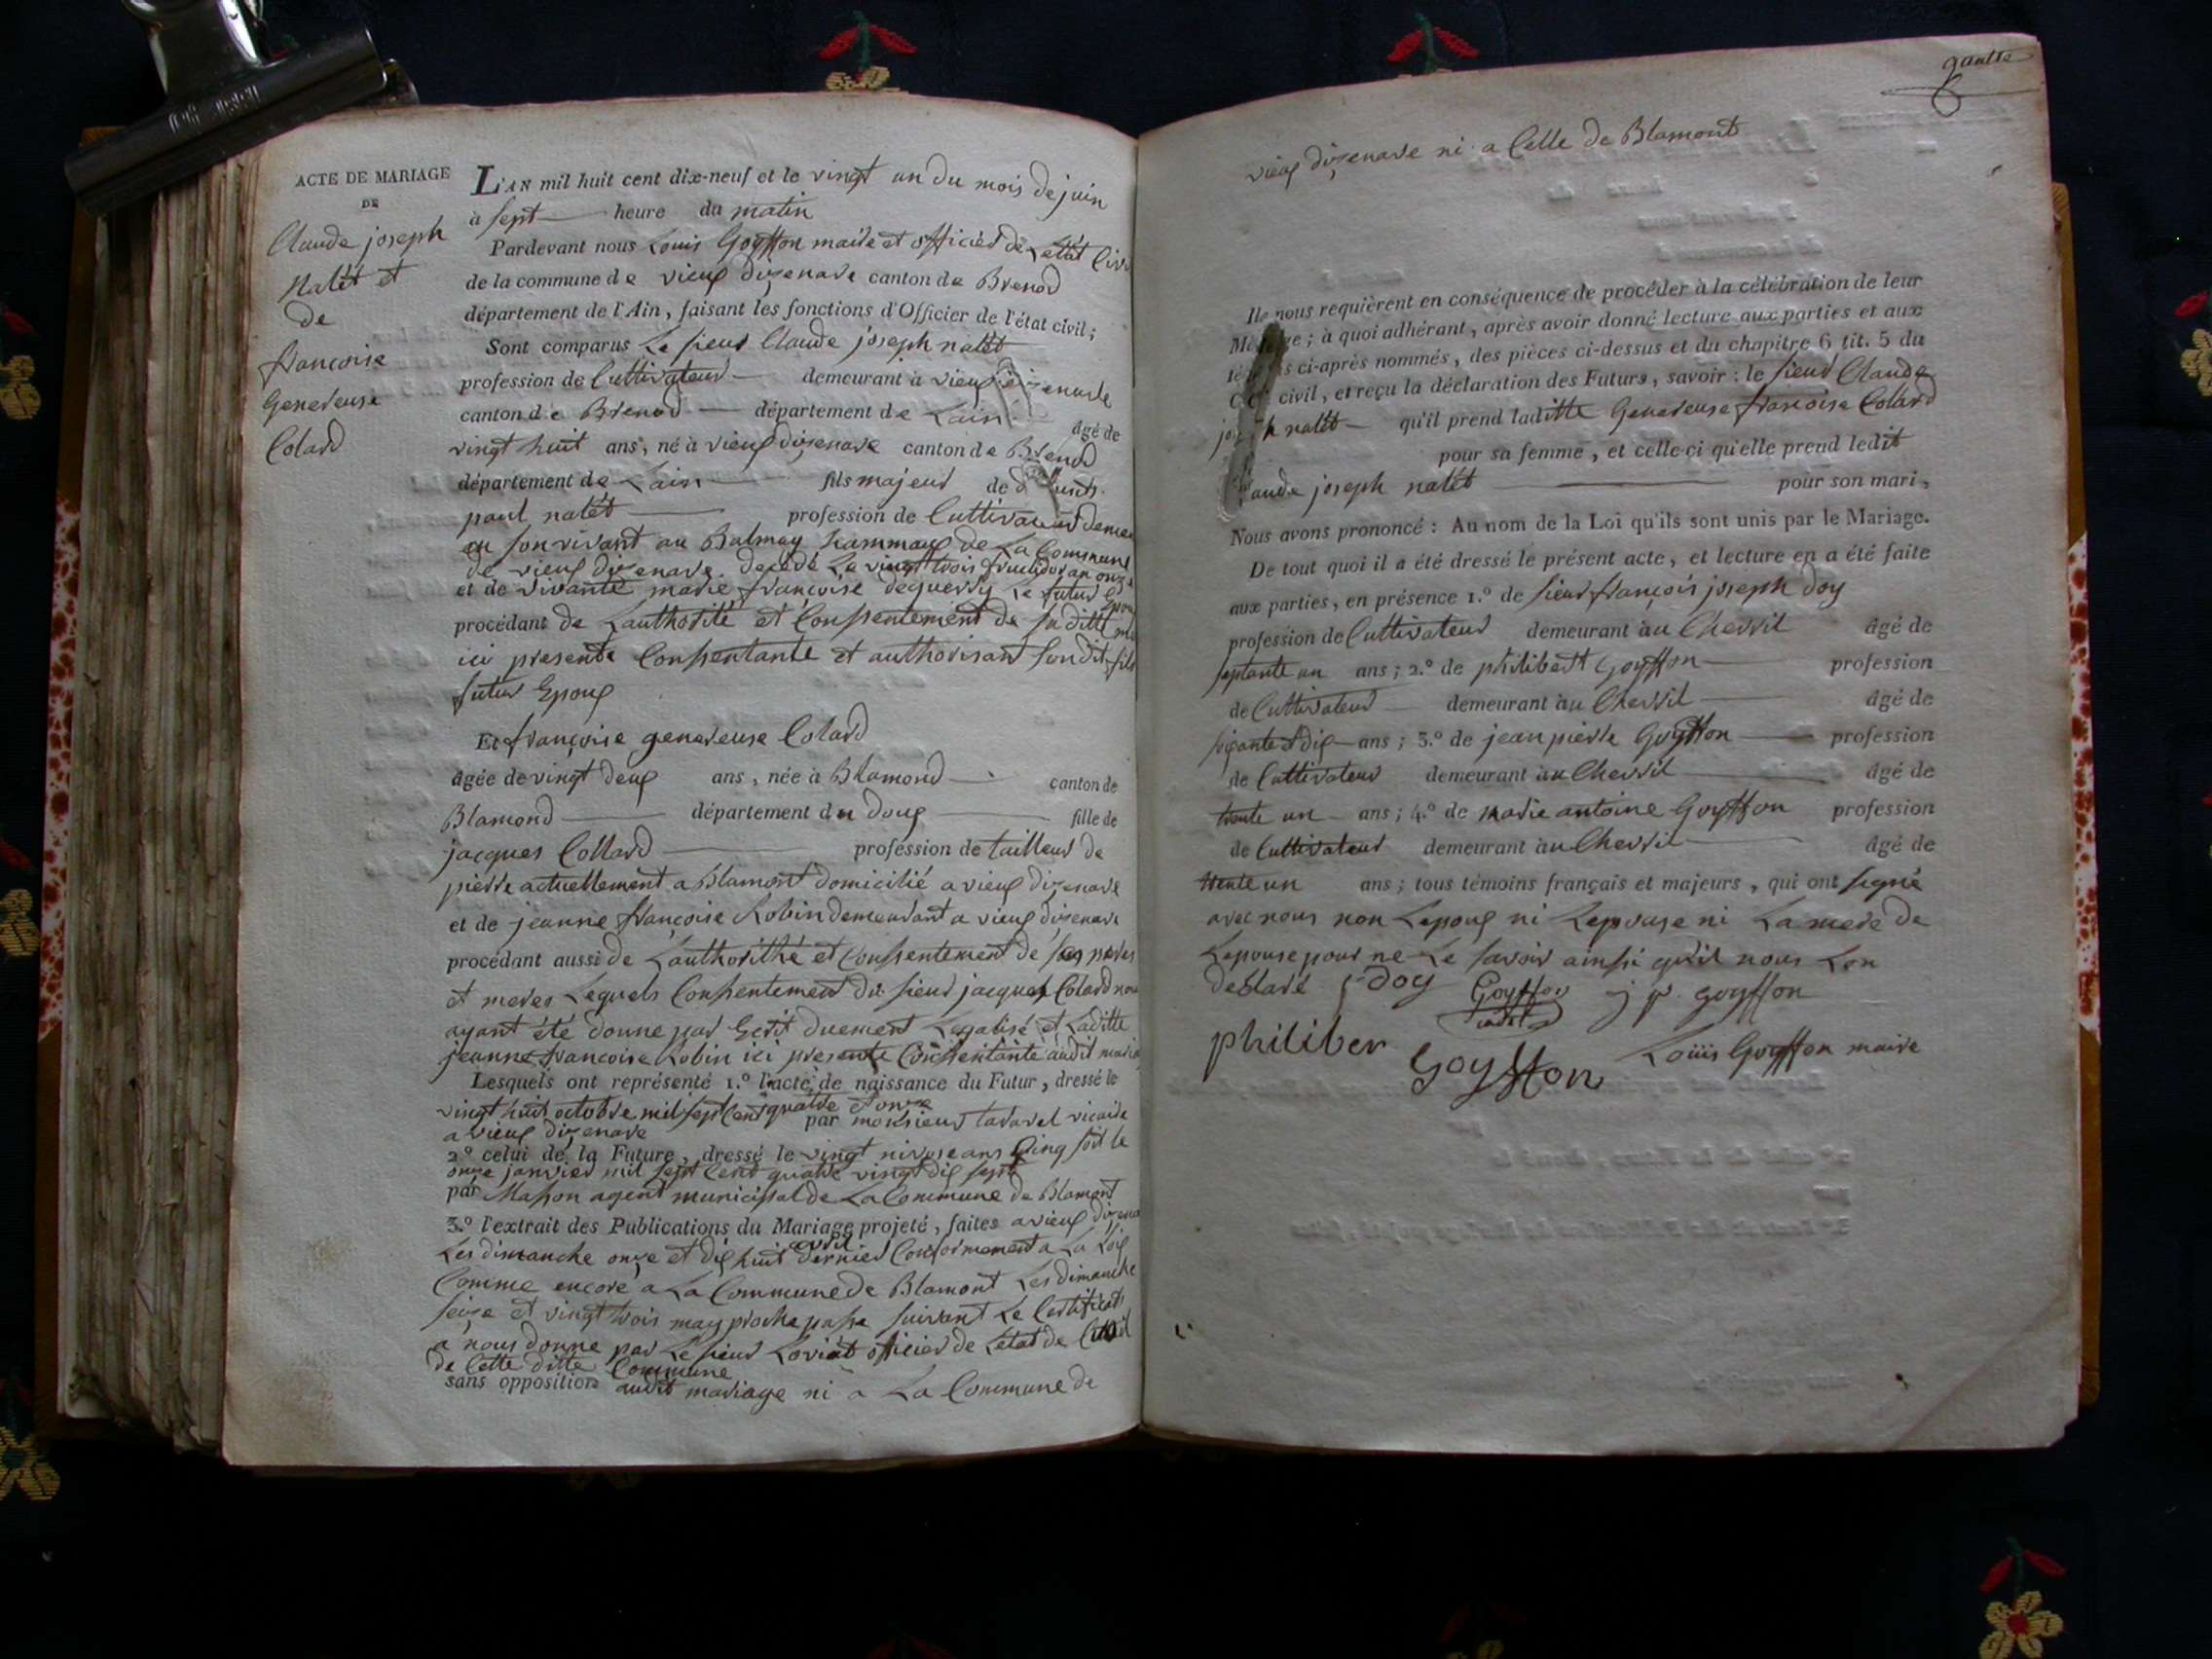 ACTE DE MARIAGE
DE
Claude joseph
Nalét et
de
francoise
Genereuse
Colard
L'AN mil huit cent dix-neuf et le vingt un du mois de juin
à sept heure du matin
Pardevant nous Louis Goyffon maire et officier de Létat Civ
de la commune de vieux dizenave canton de Brenod
département de l'Ain, faisant les fonctions d'Officier de l'état civil ;
Sont comparus Le sieur Claude joseph nalét
profession de Cultivateur demeurant à vieux dizenave
canton de Brenod département de Lain âgé de
vingt huit ans, né à vieux dizenave canton de Brenod
département de Lain fils majeur de
paul nalét profession de Cultivateur
en son vivant au Balmay hammaux de La Commune
de vieux dizenave. decédé Le vingt trois fructidor an onze
et de vivante marie françoise dequerry Le futur Epoux
procédant de Lauthorité et Consentement de sa ditte
ici presente Consentante et authorisant son dit fils
futur Epoux
Et françoise genereuse Colard
âgée de vingt deux ans, née à Blamond canton de
Blamond département du Doux fille de
jacques Collard profession de tailleur de
pierre actuellement a Blamont domicilié a vieux dizenave
et de jeanne françoise Robin demeurant a vieux dizenave
procédant aussi de Lauthorithé et Consentement de ses peres
et meres Lequels Consentement du sieur jacques Colard nous
ayant été donne par Ecrit duement Legalisé et Laditte
jeanne francoise Robin ici presente Consentante audit mariage
Lesquels ont représenté 1.º l'acte de naissance du Futur, dressé le
vingt huit octobre mil sept Cent quatre et onze
a vieux dizenave par monsieur tavavel vicaire
2.º celui de la Future, dressé le vingt nivose ans Cinq soit le
onze janvier mil sept Cent quatre vingt dix sept
par Masson agent municipal de La Commune de Blamont
3.º l'extrait des Publications du Mariage projeté, faites a vieux dizena
Les dimanche onze et dix huit avril dernier Conformement a La Loix
Comme encore a La Commune de Blamont Les dimanche
seize et vingt trois may proche passe suivant Le Certificats
a nous donne par Le sieur Loviat officier de Létat de Civil
de Cette ditte Commune
sans opposition audit mariage ni a La Commune de
gaulte
vieux dizenave ni a Celle de Blamont
Ils nous requièrent en conséquence de procéder à la célébration de leur
Mariage ; à quoi adhérant, après avoir donné lecture aux parties et aux
témoins ci-après nommés, des pièces ci-dessus et du chapitre 6 tit. 5 du
civil, et reçu la déclaration des Futurs, savoir : le sieur Claude
joseph nalét qu'il prend laditte Genereuse francoise Colard
pour sa femme, et celle-ci qu'elle prend ledit
Claude joseph nalét pour son mari,
Nous avons prononcé : Au nom de la Loi qu'ils sont unis par le Mariage.
De tout quoi il a été dressé le présent acte, et lecture en a été faite
aux parties, en présence 1.º de sieur françois joseph doy
profession de Cultivateur demeurant àu Chevril âgé de
septante un ans ; 2.º de philibert Goyffon profession
de Cultivateur demeurant àu Chevril âgé de
soixante et dix ans ; 3.º de jean pierre Goyffon profession
de Cultivateur demeurant àu Chevril âgé de
trente un ans ; 4.º de marie antoine Goyffon profession
de Cultivateur demeurant àu Chevril âgé de
trente un ans ; tous témoins français et majeurs, qui ont signé
avec nous non Lepoux ni Lepouse ni La mere de
Lepouse pour ne Le savoir ainsi qu'il nous Lon
déclaré f doy Goyffon j p. goyffon
philiber Goyffon Loüis Goyffon maire